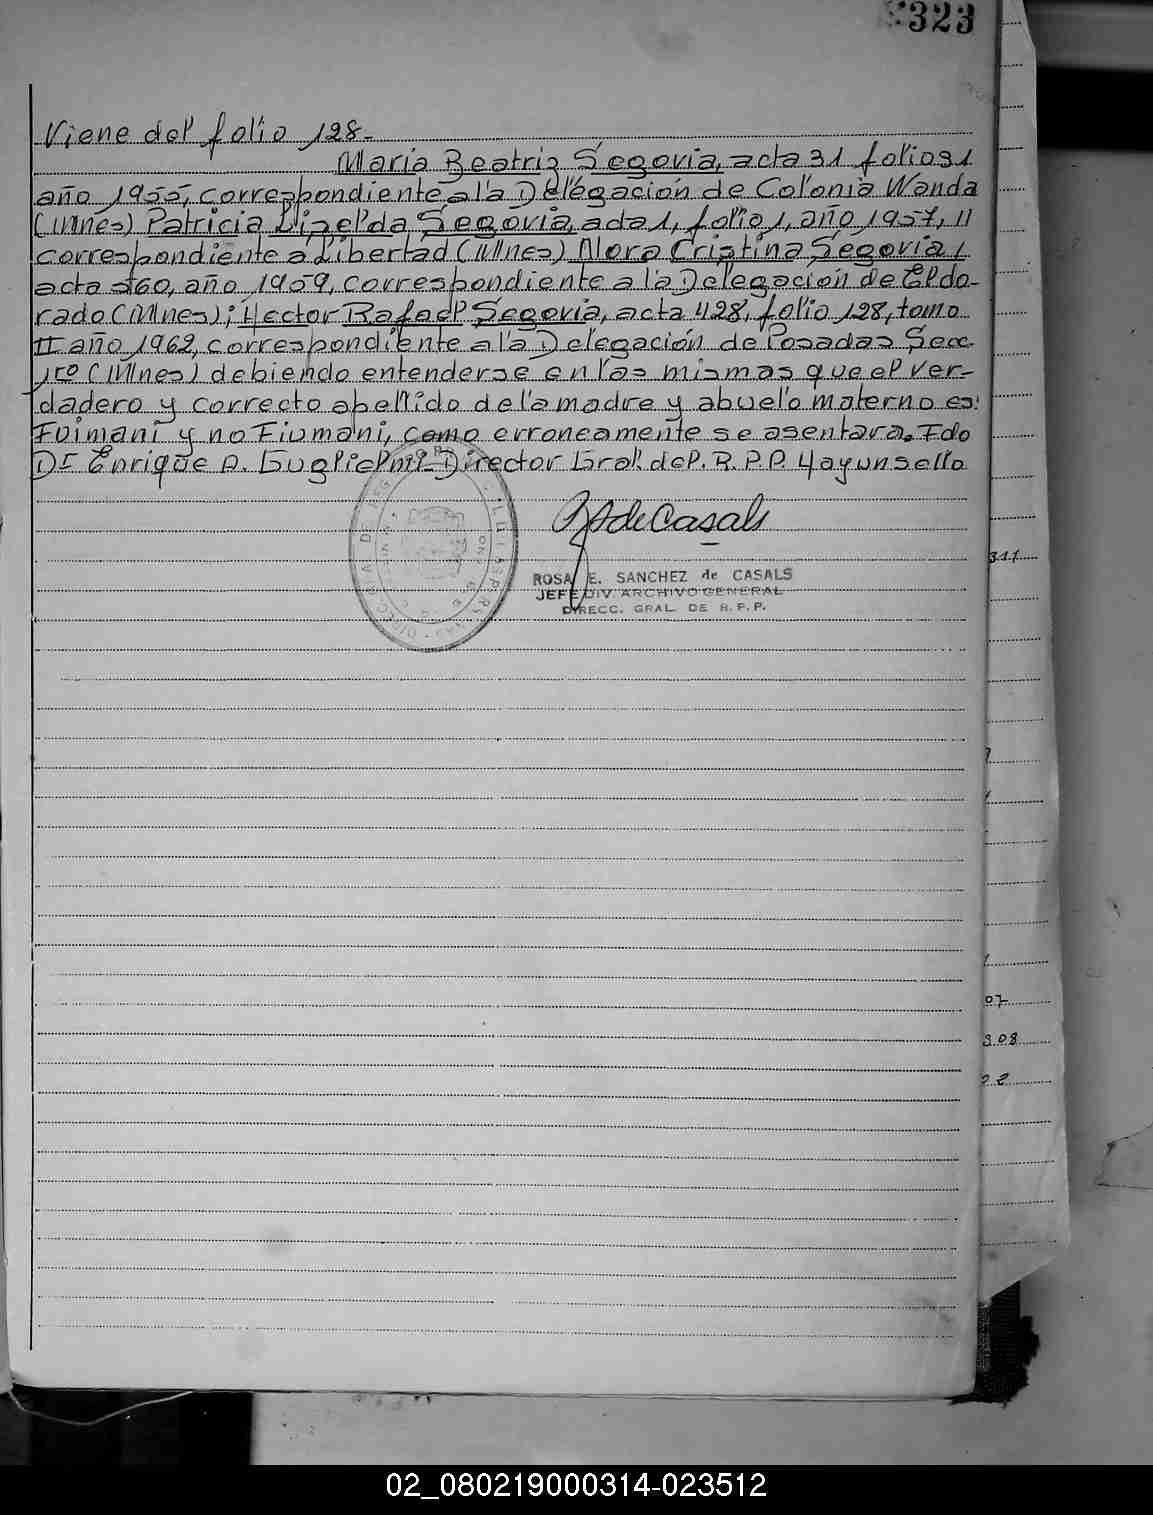 323
Viene del folio 128.-
Maria Beatriz Segovia, acta 31 folio 31
año 1955, correspondiente a la Delegación de Colonia Wanda
(Mnes) Patricia Liselda Segovia, acta 1, folio 1, año 1957, 11
correspondiente a Libertad (Mnes) Nora Cristina Segovia,
acta 560, año 1959, correspondiente a la Delegación de Eldo-
rado (Mnes); Hector Rafael Segovia, acta 428, folio 128, tomo
II año 1962, correspondiente a la Delegación de Posadas Secc.
1ro (Mnes) debiendo entenderse en las mismas que el ver-
dadero y correcto apellido de la madre y abuelo materno es:
Fuimani y no Fiumani, como erroneamente se asentara. Fdo
Dr Enrique A. Guglielmi - Director Gral. del. R. P. P. Hay un sello
ROSA E. SANCHEZ de CASALS
JEFE DIV. ARCHIVO GENERAL
DIRECC. GRAL. DE R. P. P.
311
07
308
02_080219000314-023512